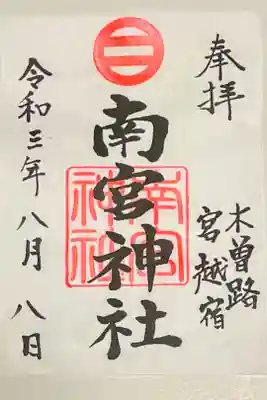 奉拝
木曽路
宮越宿
南宮神社
南宮
神社
令和三年八月八日